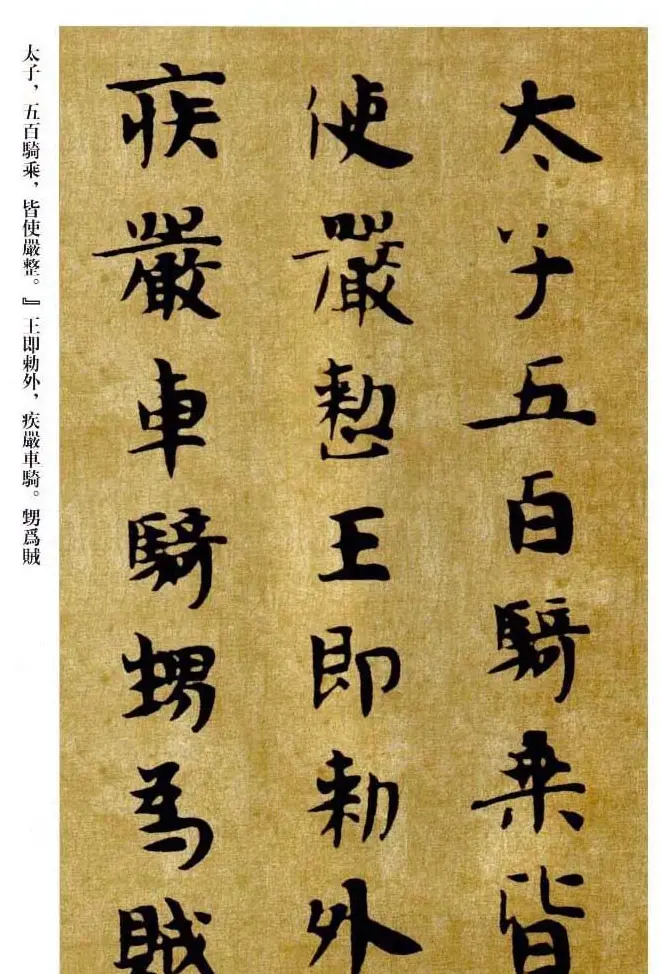 太子五百騎乗皆
使嚴整王即勑外
疾嚴車騎甥爲賊
太子，五百騎乘，皆使嚴整。』王即勑外，疾嚴車騎。甥爲賊